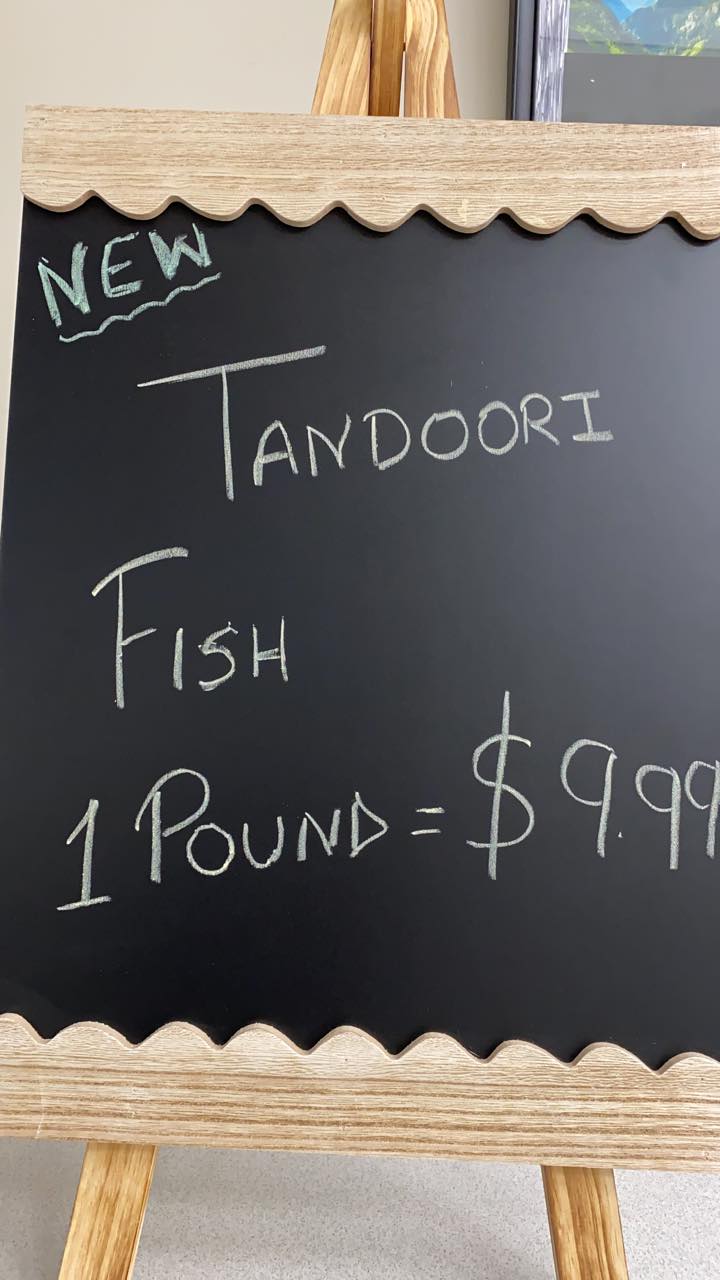 NEW
TANDOORI
FISH
1 POUND = $9.99